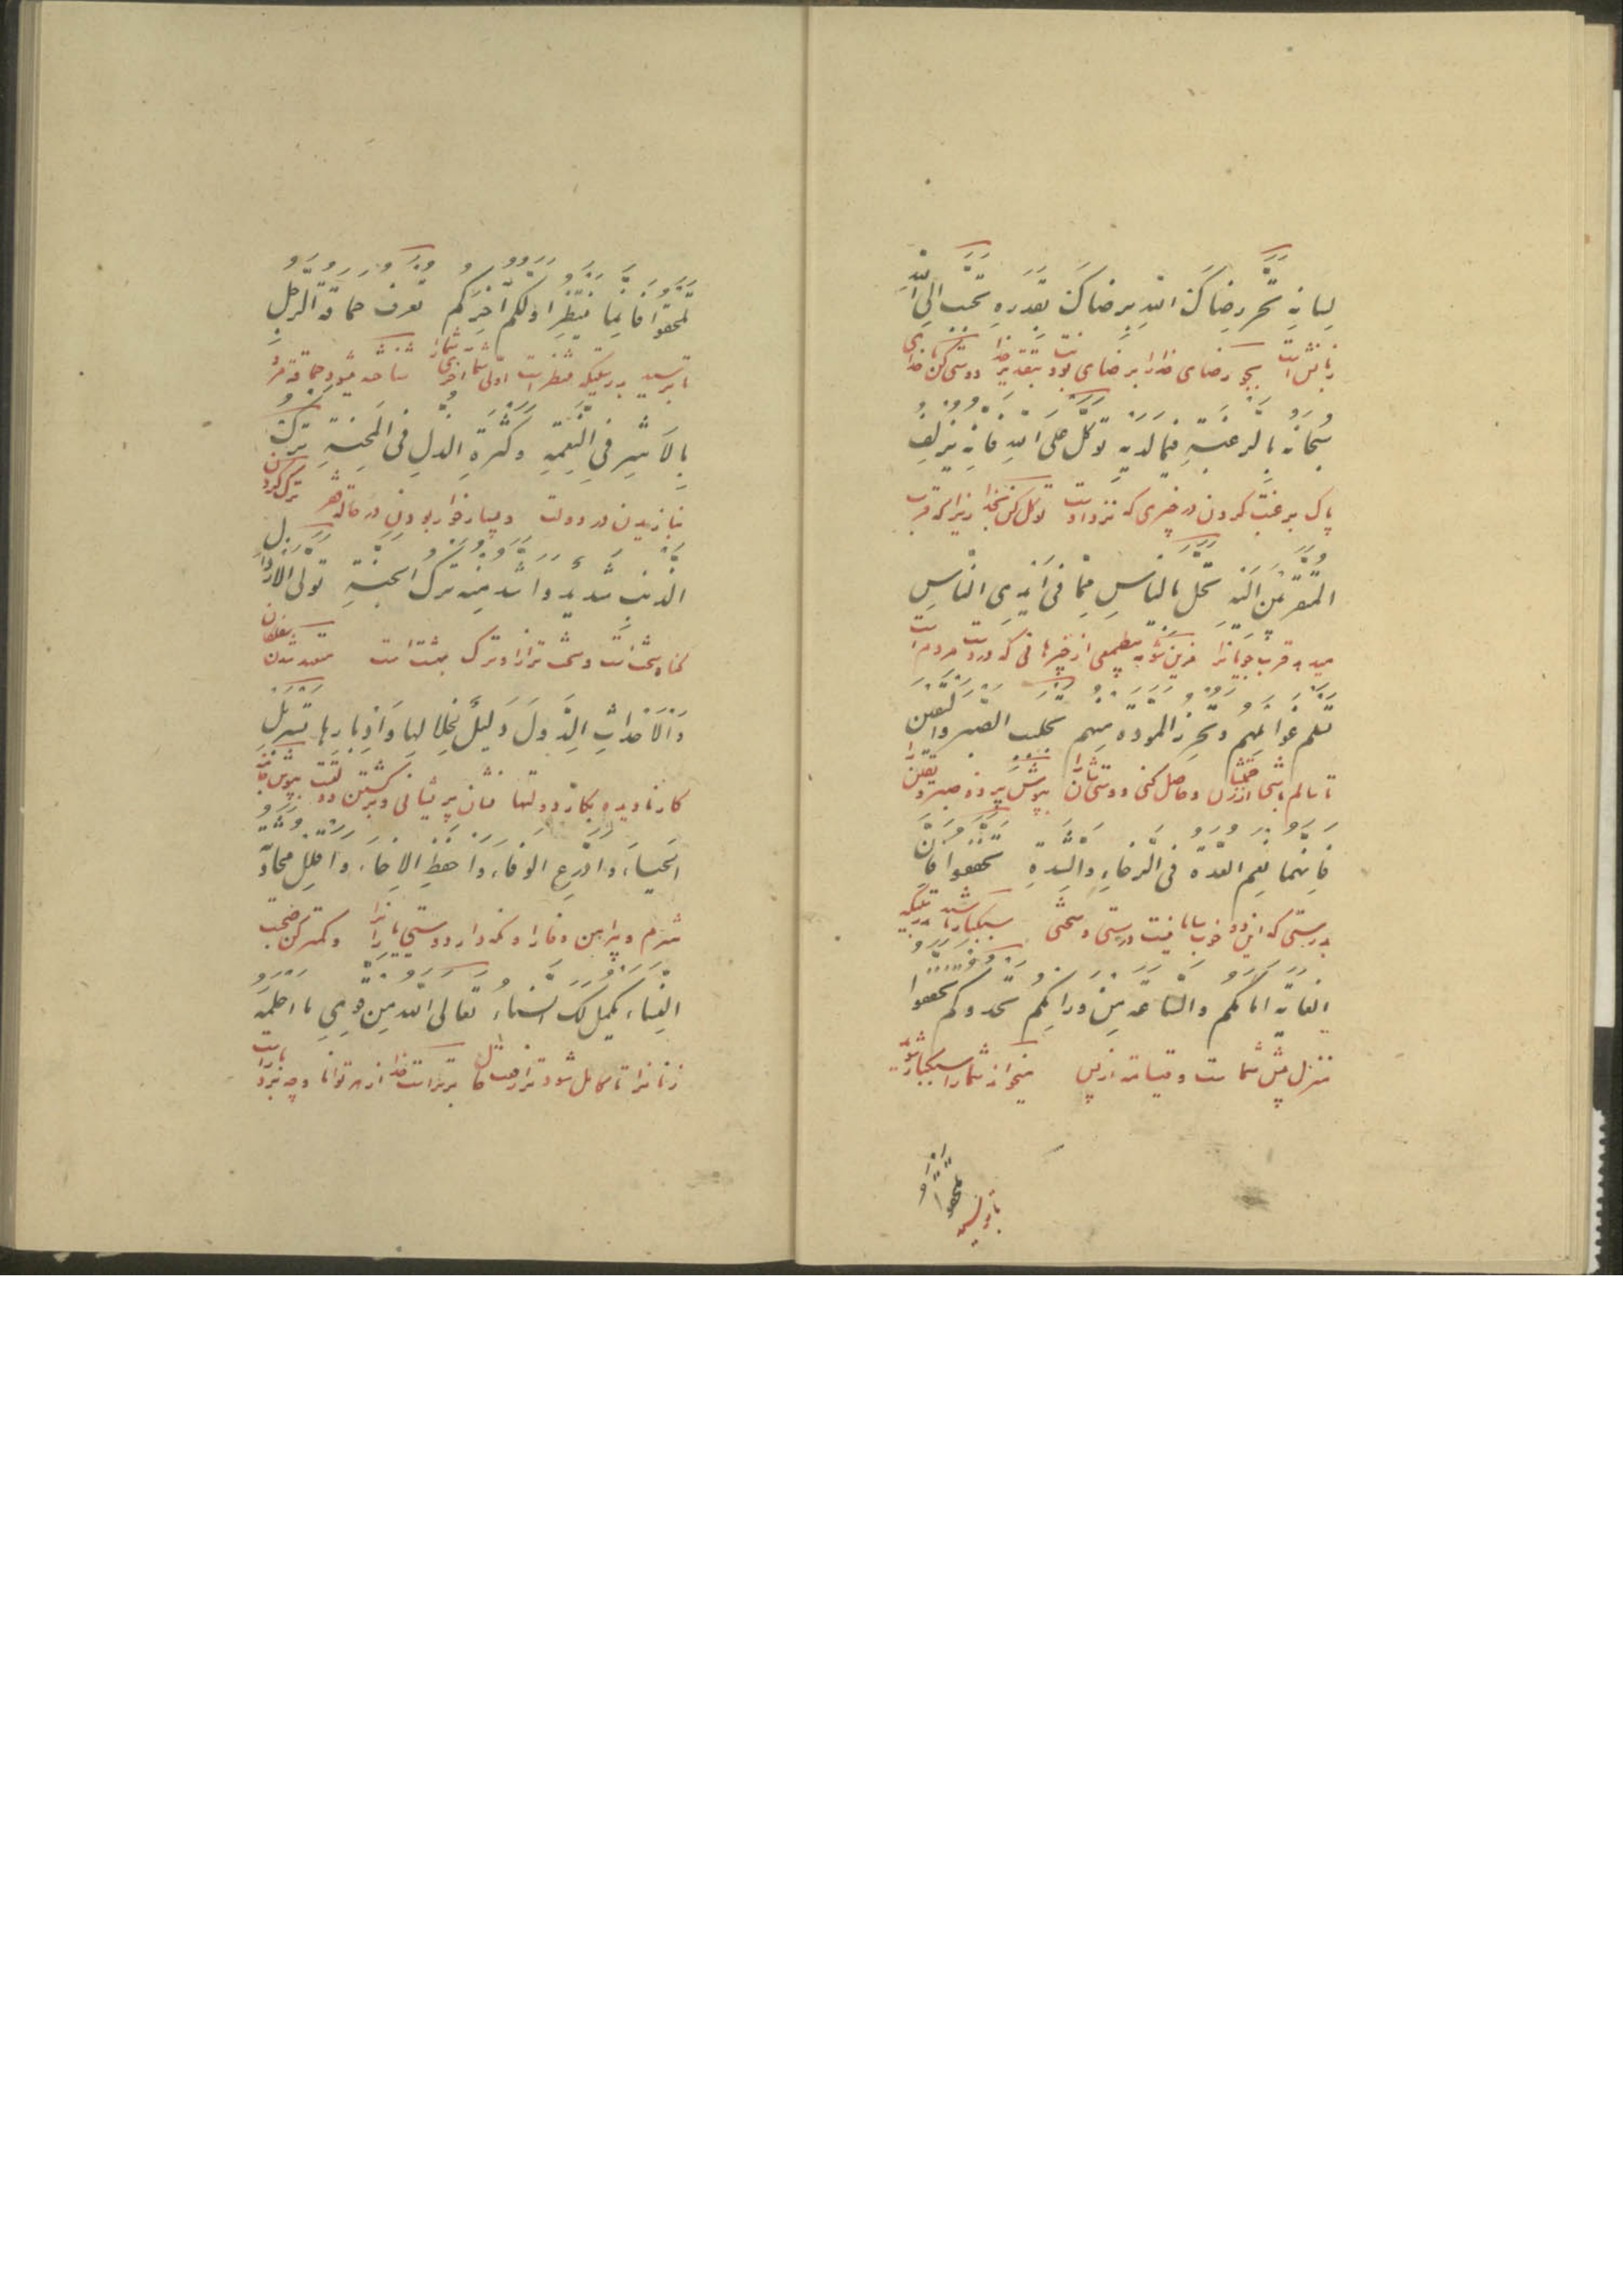 لِسانِهِ تَحَرَّ رِضاکَ اللهِ بِرِضاکَ بِقَدَرِهِ تَحَبَّبْ اِلَی اللهِ
زبانش است بجو رضای خدا را برضای خودت بتقدیر خدا دوستی کن با خدای
سُبْحانَهُ بِالرَّغْبَةِ فیما لَدَیْهِ تَوَکَّلْ عَلَی اللهِ فَاِنَّهُ یُزْلِفُ
پاک برغبت کردن در چیزی که نزد اوست توکل کن بخدا زیرا که قرب
الْمُتَقَرِّبینَ اِلَیْهِ تَحَلَّ بِالْیَأسِ مِمّا فی اَیْدِی النّاسِ
میدهد قرب جویانرا مزین شو به بیطمعی از چیزهائی که در دست مردم است
تَسْلَمْ غَوائِلَهُمْ وَتُحْرِزِ الْمَوَدَّةَ مِنْهُمْ تَجَلْبَبِ الصَّبْرَ وَالْیَقینَ
تا سالم باشی از و حاصل کنی دوستی شان را بپوش پرده صبر و یقین را
فَاِنَّهُما نِعْمَ الْعُدَّةُ فِی الرَّخاءِ وَالشِّدَّةِ تَخَفَّفُوا فَاِنَّ
بدرستی که این دو خوب سامانیست در سستی و سختی سبکبار باشید بدرستیکه
الْغایَةَ اَمامَکُمْ وَالسّاعَةَ مِنْ وَرائِکُمْ تَحْدُوکُمْ تَخَفَّفُوا
منزل پیش شماست و قیامت از پس میخواند شما را سبکبار شوید
تَلْحَقُوا
تا برسید
تَلْحَقُوا فَاِنَّما یُنْتَظَرُ بِاَوَّلِکُمْ آخِرُکُمْ تُعْرَفُ حَماقَةُ الرَّجُلِ
تا برسید بدرستیکه منتظر است اولی شما آخری شما را شناخته میشود حماقة مرد
بِالْاَشَرِ فِی النِّعْمَةِ وَکَثْرَةِ الذُّلِّ فِی الْمِحْنَةِ تَرْکُ
بنازیدن در دولت و بسیار خوار بودن در حالت ترک کردن
الذَّنْبِ شَدیدٌ وَاَشَدُّ مِنْهُ تَرْکُ الْجَنَّةِ تَوَلِّی الْاَراذِلِ
گناه سخت است و سخت تر ازو ترک بهشت است متعهد شدن سفلگان
وَالْاَحْداثِ الدُّوَلَ دَلیلُ انْحِلالِها وَاِدْبارِها تَسَرْبَلِ
کار نادیده بکار دولتها نشان پریشانی و برگشتن دولت بپوش
الْحَیاءَ وَادَّرِعِ الْوَفاءَ وَاحْفَظِ الْاِخاءَ وَاَقْلِلْ مُحادَثَةَ
شرم و پیراهن وفا را و نگهدار دوستی یارانرا و کمتر کن صحبت
النِّساءِ یَکْمُلْ لَکَ السَّناءُ تَعالَی اللهُ مِنْ قَوِیٍّ ما اَحْلَمَهُ
زنانرا تا کامل شود ترا رفعت برتر است خدا از هر توانا و چه بردبار است